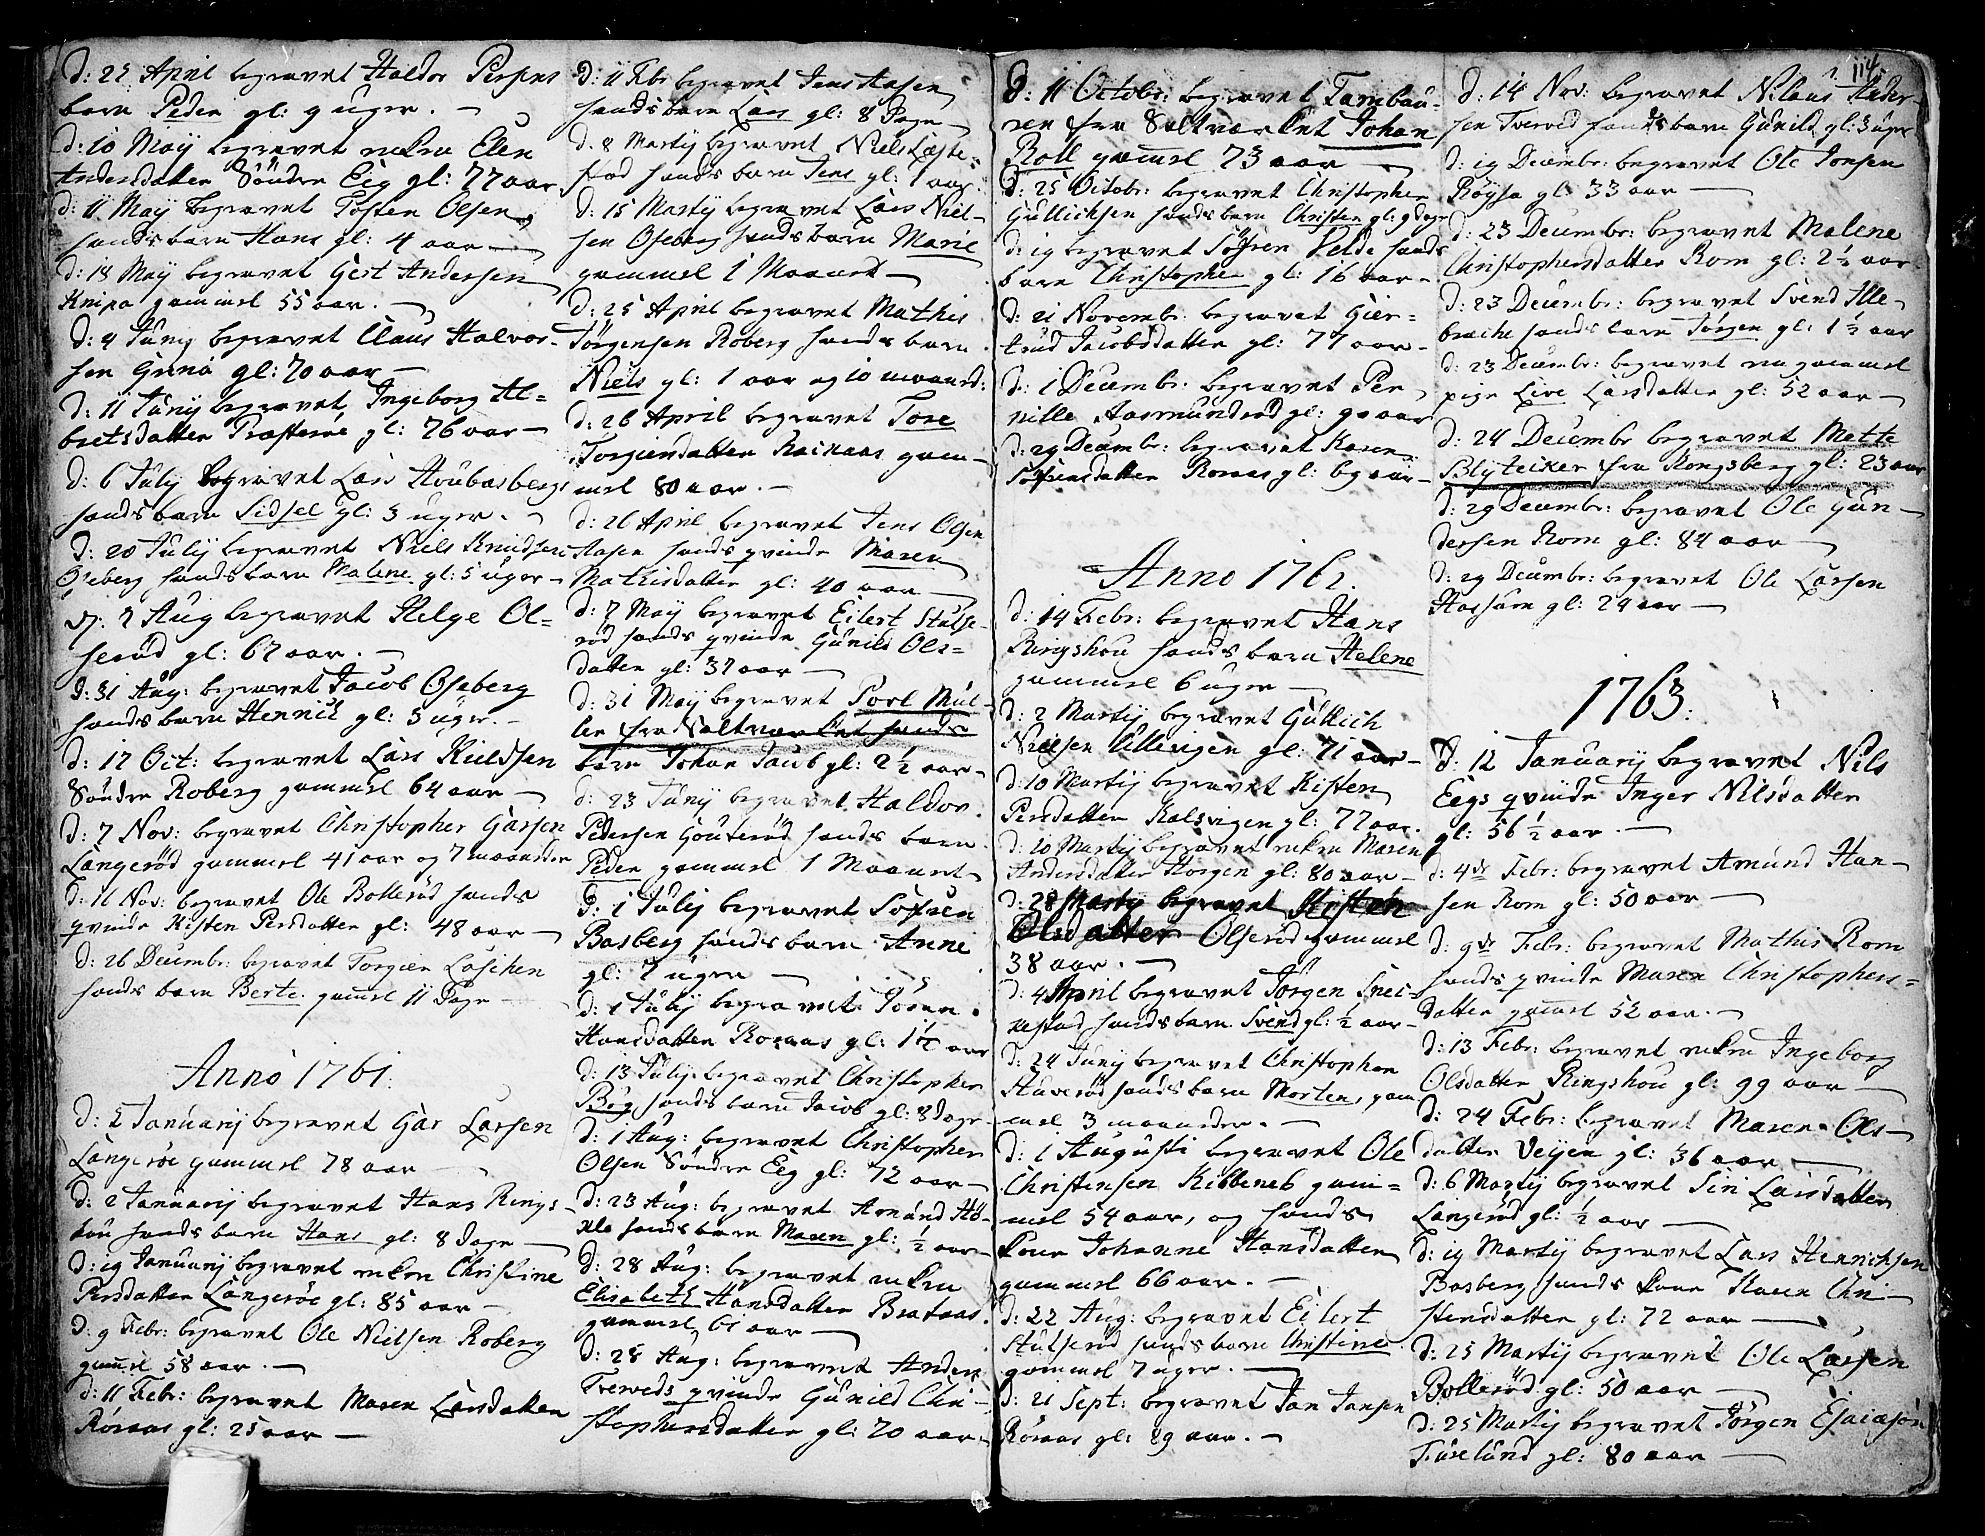 d: 27 April begravet Haldor Persens
barn Peder gl: 9 uger. —
d: 10 Maij begravet enken Elen
Andersdatter Søndre Eig gl: 77 aar
d: 11 Maij begravet Tosten Olsen
hands barn Hans gl: 4 aar —
d: 18 Maij begravet Gert Andersen
Knipa gammel 55 aar. —
d: 4 Junij begravet Claus Halvor-
sen Grinø gl: 70 aar —
d: 11 Junij begravet Ingeborg Al=
bretsdatter Præsterne gl: 76 aar —
d: 6 Julij begravet Lars Houbasbergs
hands barn Sidsel gl: 3 uger. —
d: 20 Julij begravet Niels Knudsen
Oseberg hands barn Malene gl: 5 uger —
d: 7 Aug begravet Helge Ol=
serød gl: 67 aar. —
d: 31 Aug: begravet Jacob Oseberg
hands barn Henrich gl: 3 uger. —
d: 17 Oct: begravet Lars Kieldsen
Søndre Roberg gammel 64 aar —
d: 7 Nov: begravet Christopher Garsen
Langerød gammel 41 aar og 7 maaneder
d: 11 Nov: begravet Ole Bollerød hands
qvinde Kisten Persdatter gl: 48 aar —
d: 26 Decembr: begravet Torgier Lofsken
hands barn Berte gamel 11 Dage —
Anno 1761.
d: 2 Januarij begravet Gar Larsen
Langeröe gammel 78 aar —
d: 2 Januarij begravet Hans Rings-
hou hands barn Hans gl: 8 Dage —
d: 19 Januarij begravet enken Christine
Persdatter Langeröe gl: 85 aar —
d: 9 Febr: begravet Ole Nielsen Roberg
gamel 58 aar. —
d: 11 Febr: begravet Maren Larsdatter
Röraas gl: 25 aar —
d: 11 Febr begravet Jens Aasen
hands barn Lars gl: 8 Dage —
d: 8 Martij begravet Niels Løste-
stad hands barn Jens gl: 1 aar.
d: 15 Martij begravet Lars Niel-
sen Oseberg hands barn Marie
gammel 1 Maanet —
d: 25 April begravet Mathis
Jørgensen Roberg hands barn
Niels gl: 1 aar og 10 maaned:
d: 26 April begravet Tore
Torgiersdatter Raskaas gam-
mel 80 aar. —
d: 26 April begravet Jens Olsen
Aasen hands qvinde Maren
Mathisdatter gl: 40 aar —
d: 7 Maij begravet Eilert Stulse-
rød hands qvinde Gunild Ols=
datter gl: 37 aar —
d: 31 Maij begravet Poel Mül-
ler fra Saltværket hands
barn Johan Jacob gl: 2½ aar —
d: 23 Junij begravet Haldov
Pedersen Gouterød hands barn
Peder gammel 1 Maanet —
d: 1 Julij begravet Söfren
Basberg hands barn Anne
gl: 7 uger —
d: 1 Julij begravet Joran
Hansdatter Roraas gl: 1½ aar
d: 13 Julij begravet Christopher
Bög hands barn Jacob gl: 8 Dage —
d: 1 Aug: begravet Christopher
Olsen Søndre Eeg gl: 72 aar —
d: 23 Aug: begravet Amund Hö-
hands barn Maren gl: ½ aar —
d: 28 Aug: begravet enken
Elisabeth Hansdatter Brataas.
gammel 61 aar —
d: 28 Aug: begravet Anders
Treveds qvinde Gunild Chri-
stophersdatter gl: 70 aar. —
114
d: 11 Octobr: begravet Tambou-
ren fra Saltværket Johan
Roll gammel 73 aar —
d: 25 Octobr: begravet Christopher
Gullichsen hands barn Christen gl: 9 dage
d: 19 begravet Söfren Velde hands
barn Christopher gl: 16 aar —
d: 21 Novembr: begravet Gier=
trud Jacobsdatter gl: 77 aar —
d: 1 Decembr: begravet Per-
nille Aasmundrød gl: 90 aar
d: 29 Decembr: begravet Karen
Söfrensdatter Roraas gl: 69 aar —
Anno 1762.
d: 14 Febr: begravet Hans
Ringshou hands barn Helene
gammel 6 uger —
d: 2 Martij begravet Gullich
Nielsen Ullevigen gl: 71 aar —
d: 10 Martij begravet Kisten
Persdatter Kalsvigen gl: 77 aar.
d: 10 Martij begravet enken Maren
Andersdatter Horgen gl: 80 aar —
d: 28 Martij begravet Kisten
Olsdatter Olserød gammel
38 aar. —
d: 4 April begravet Jørgen Snei-
kestad hands barn Svend gl: ½ aar —
d: 24 Junij begravet Christopher
Haverød hands barn Morten, gam
mel 3 maaneder. —
d: 1 Augusti begravet Ole
Christensen Kibbeneb gam=
mel 54 aar, og hands
kone Johanne Hansdatter
gammel 66 aar. —
d: 22 Aug: begravet Eilert
Stulserød hands barn Christine
gammel 7 uger. —
d: 21 Sept: begravet Jan Jansen
Röraas gl: 29 aar. —
d: 14 Nov: begravet Nilaus Ander-
sen Treved hands barn Gunild gl: 3 uger
d: 19 Decembr: begravet Ole Jonsen
Röysa gl: 33 aar —
d: 23 Decembr: begravet Malene
Christophersdatter Rom gl: 2½ aar.
d: 23 Decembr: begravet Svend Ille-
breche hands barn Jørgen gl: 1½ aar
d: 23 Decembr: begravet en gammel
pige Live Larsdatter gl: 52 aar —
d: 24 Decembr begravet Mette
Blyteiker fra Kongsberg gl: 23 aar
d: 29 Decembr: begravet Ole Gun-
dersen Rom gl: 84 aar —
d: 29 Decembr: begravet Ole Larsen
Hassum gl: 24 aar —
1763.
d: 12 Januarij begravet Nils
Eegs qvinde Inger Nilsdatter
gl: 56½ aar. —
d: 4de Febr: begravet Amund Han-
sen Rom gl: 50 aar —
d: 9de Febr: begravet Mathis Rom
hands qvinde Maren Christophers=
datter gamel 52 aar. —
d: 13 Febr: begravet enken Ingeborg
Olsdatter Ringshou gl: 99 aar —
d: 24 Febr: begravet Maren Ols-
datter Veijen gl: 36 aar —
d: 6 Martij begravet Siri Larsdatter
Langerød gl: ½ aar —
d: 19 Martij begravet Lars Henrichsen
Basberg hands kone Karen Chri-
stensdatter gl: 72 aar —
d: 25 Martij begravet Ole Larsen
Bollerød gl: 50 aar —
d: 25 Martij begravet Jørgen Esaiasøn
Fuselund gl: 80 aar —